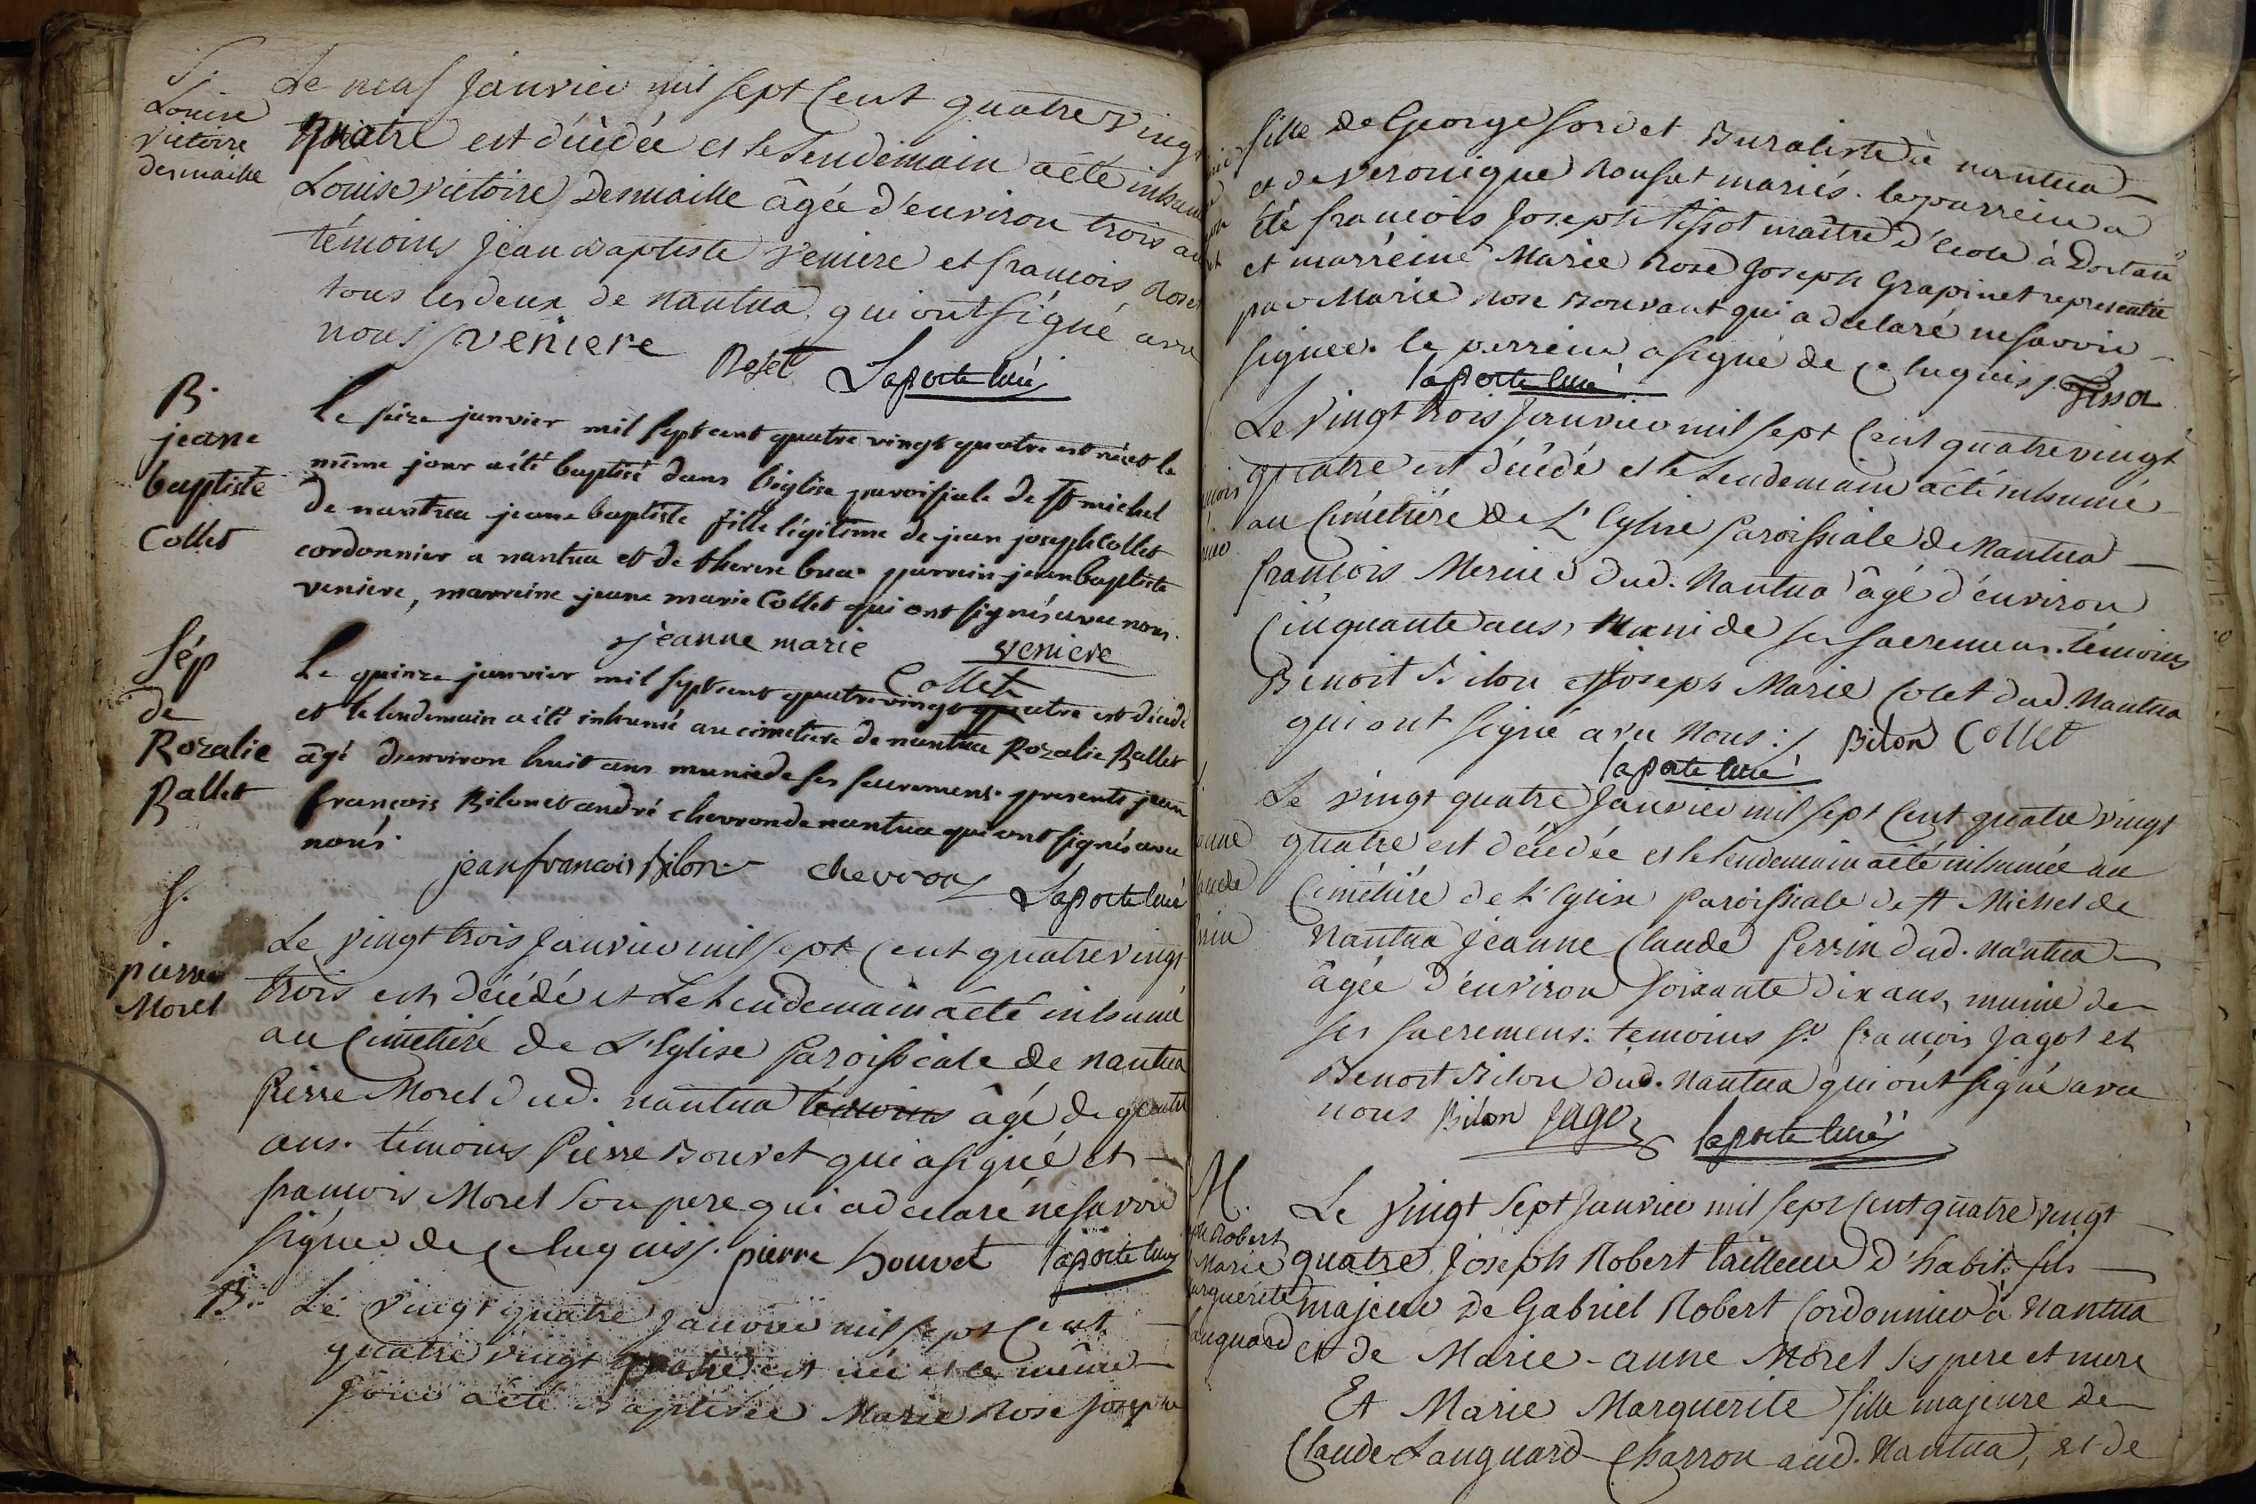 S.
Louise
Victoire
Desmaille
Le neuf Janvier mil sept Cent quatre vingt
quatre est décédée et le Lendemain a été inhumé
Louise victoire Desmaille âgée d'environ trois an
témoins Jean Baptiste Veniere et francois Roset
tous les deux de nantua qui ont signé avec
nous veniere Roset Laporte curé
B.
jeane
baptiste
Collet
le seize janvier mil sept cent quatre vingt quatre est née et le
même jour a été baptisé dans l'église paroissiale de St michel
de nantua jeane baptiste fille légitime de jean joseph Collet
cordonnier a nantua et de therese parrain jean baptiste
veniere, marreine jeane marie Collet qui ont signés avec nous.
jeanne marie veniere
Collet
Sép
de
Rozalie
Ballet
Le quinze janvier mil sept cent quatre vingt quatre est décédé
et le lendemain a été inhumé au cimetiere de nantua Rozalie Ballet
âgé d'environ huit ans munie de ses sacremens. presents jean
françois Bilon et andré chevron de nantua qui ont signés avec
nous.
jean francois Bilon chevron Laporte curé
S.
pierre
Morel
Le vingt trois Janvier mil sept Cent quatre vingt
trois est décédé et Le Lendemain a été inhumé
au Cimetiére de L'Eglise Paroissiale de nantua
Pierre Morel dud. nantua témoins âgé de quatre
ans. témoins Pierre Bouvet qui a signé et
francois Morel son pere qui a declaré ne savoir
signer de ce luquis /. pierre bouvet laporte curé
B.
Le vingt quatre Janvier mil sept Cent
quatre vingt quatre est née et le même
jour a été Baptisée Marie Rose Joseph
fille de George sordet Buraliste à nantua
et de veronique Rousset mariés. le parrein a
été francois Joseph tissot maître d'Ecole à Dortan
et marréine Marie Rose Joseph Grapinet representée
par Marie Rose Bouvant qui a declaré ne savoir
signer. le parrein a signé de ce luquis /. Tissot
laporte curé
Le vingt trois Janvier mil sept Cent quatre vingt
quatre est décédé et le Lendemain a été inhumé
au Cimétiére de L'Eglise Paroissiale de Nantua
francois Mercier dud. Nantua âgé d'environ
Cinquante ans, Muni de ses sacremens. témoins
Benoit Bilon et Joseph Marie Colet dud. Nantua
qui ont signé avec Nous :/ Bilon Collet
laporte curé
Le vingt quatre Janvier mil sept Cent quatre vingt
quatre est décédée et le Lendemain a été inhumée au
Cimétiére de L'Eglise Paroissiale de St Michel de
Nantua Jeanne Claude Perrin dud. nantua
âgée d'environ soixante dix ans, munie de
ses sacremens: temoins Sr. François Jagot et
Benoit Bilon dud. Nantua qui ont signé avec
nous Bilon Jagot laporte curé
M.
Robert
Marie
Marguerite
Languard
Le Vingt Sept Janvier mil sept Cent quatre vingt
quatre Joseph Robert tailleur d'habit, fils
majeur de Gabriel Robert Cordonnier à Nantua
et de Marie-anne Morel ses pere et mere
Et Marie Marguerite fille majeure de
Claude Languard Charron aud. Nantua, et de